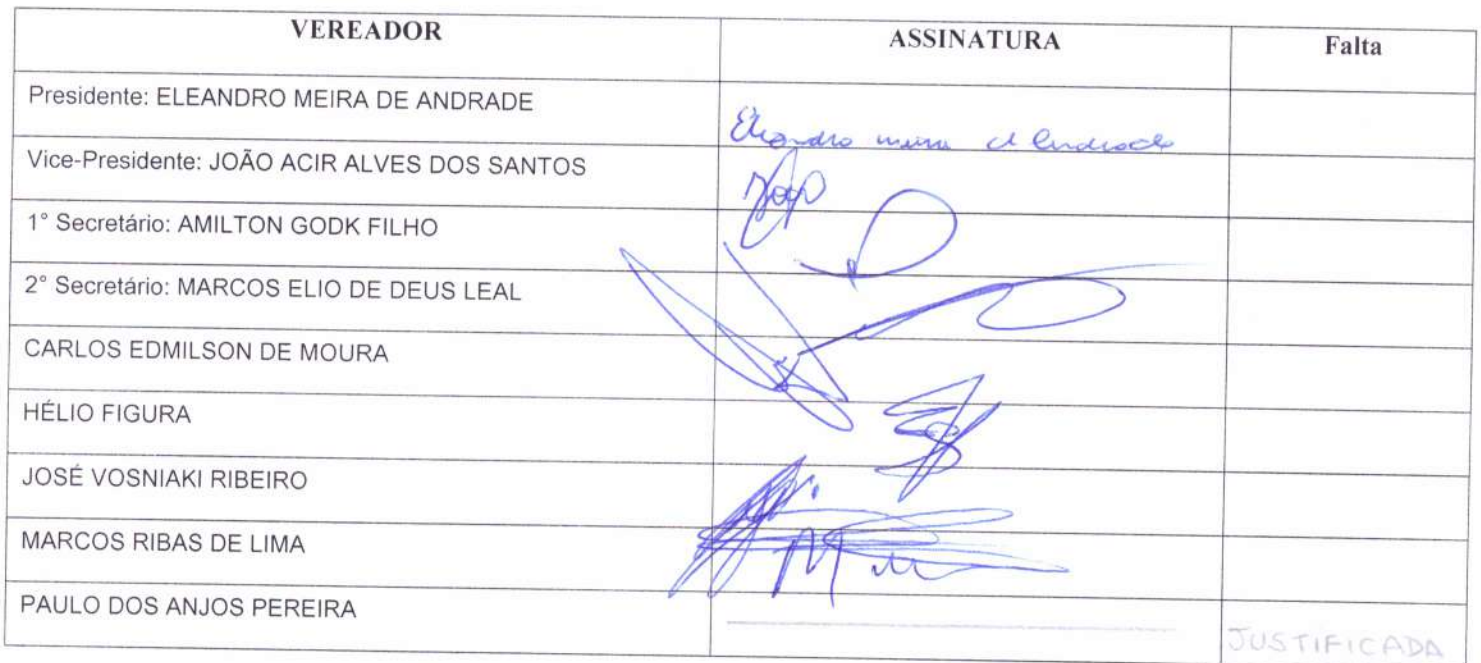 VEREADOR ASSINATURA Falta
Presidente: ELEANDRO MEIRA DE ANDRADE
Vice-Presidente: JOÃO ACIR ALVES DOS SANTOS
1° Secretário: AMILTON GODK FILHO
2° Secretário: MARCOS ELIO DE DEUS LEAL
CARLOS EDMILSON DE MOURA
HÉLIO FIGURA
JOSÉ VOSNIAKI RIBEIRO
MARCOS RIBAS DE LIMA
PAULO DOS ANJOS PEREIRA JUSTIFICADA